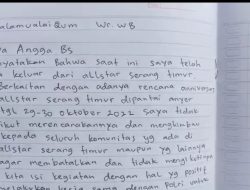 alamualai Qum Wr. WB
a Angga Bs
nyatakan Bahwa saat ini saya telah
keluar dari allstar serang timur
Berkaitan dengan adanya rencana anniversary
allstar serang timur dipantai anyer
tgl 29-30 oktober 2022 saya tidak
ikut merencanakannya dan menghimbau
kepada seluruh komunitas yg ada di
allstar serang timur maupun yg lainnya
agar membatalkan dan tidak mengikutinya
kita isi kegiatan dengan hal yg positif
melakukan kerja sama dengan Polri untuk